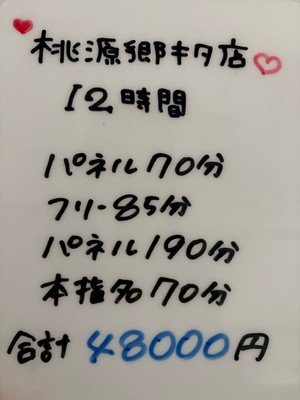 桃源郷キタ店
12時間
パネル70分
フリー85分
パネル190分
本指名70分
合計 48000円